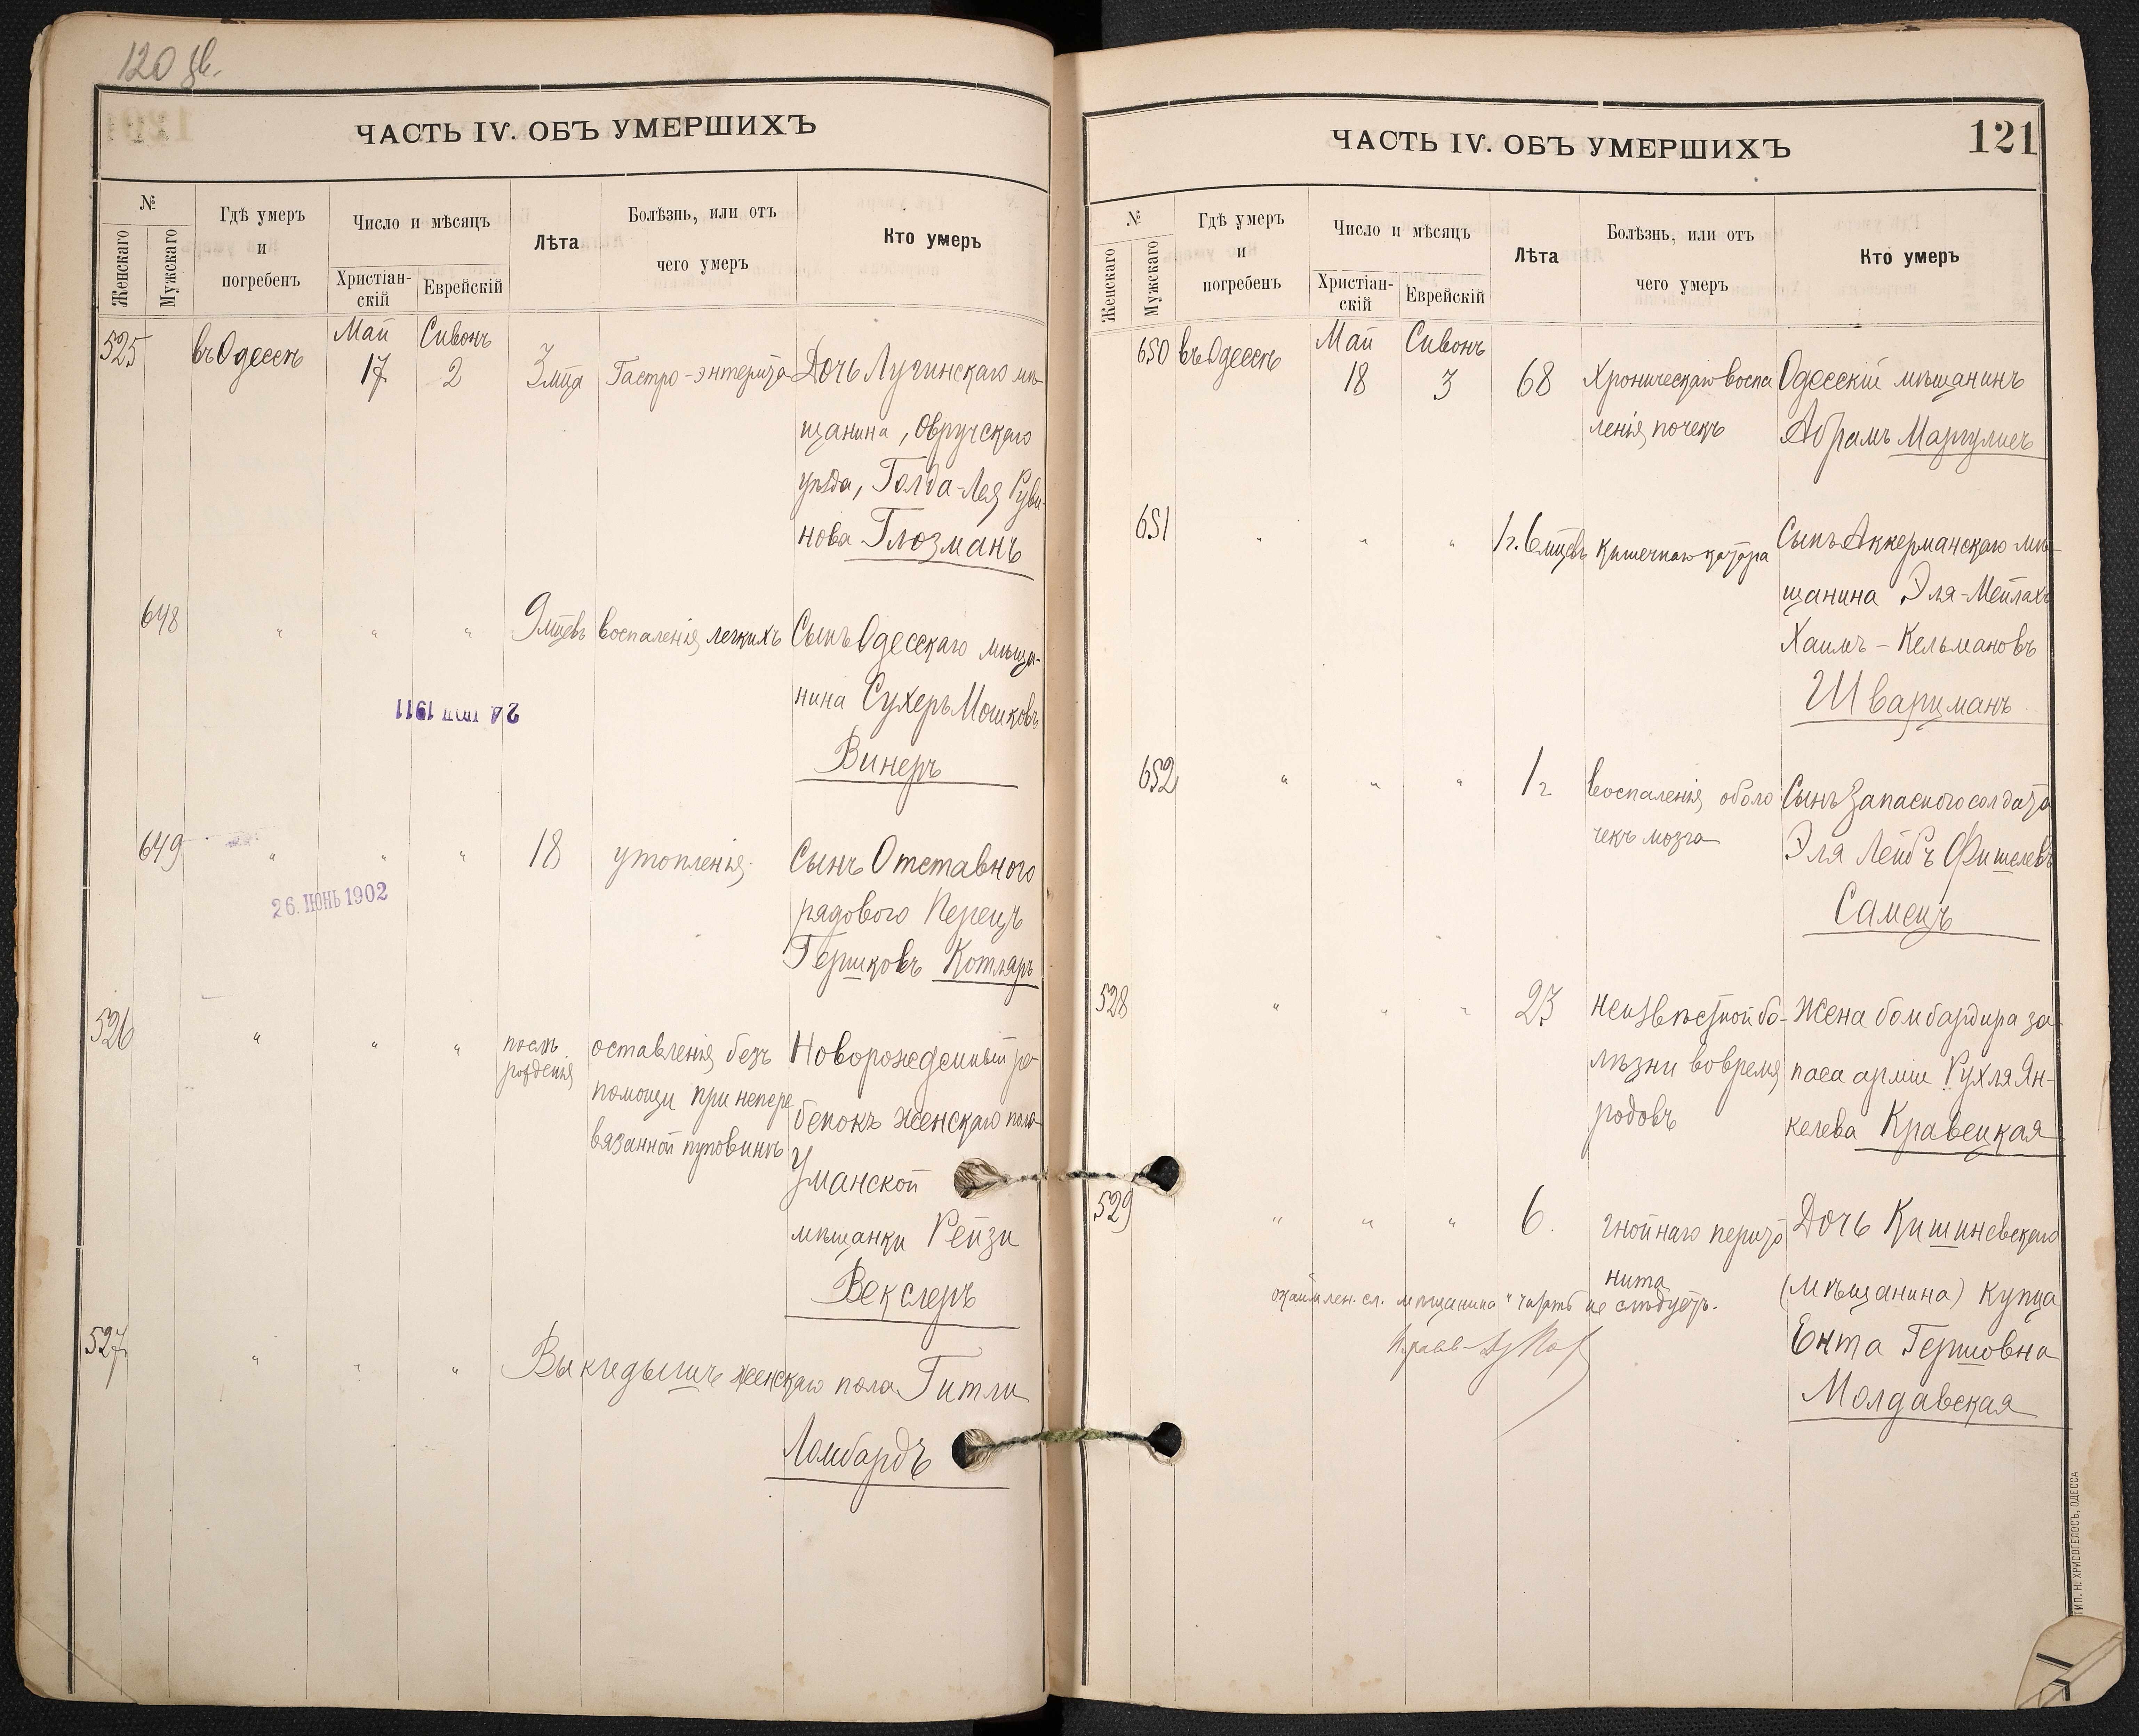 120 об.
ЧАСТЬ IV. ОБЪ УМЕРШИХЪ
№
Женскаго
Мужскаго
Гдѣ умеръ
и
погребенъ
Число и мѣсяцъ
Христіан-
скій
Еврейскій
Лѣта
Болѣзнь, или отъ
чего умеръ
Кто умеръ
525 въ Одессѣ Май 17 Сивонъ 2 3 мца Гастро-энтерита Дочь Лугинскаго мѣ-
щанина, Овручскаго
уѣзда, Голда-Лея Руви-
нова Глозманъ
648 " " " 9 мцевъ воспаленія легкихъ Сынъ Одесскаго мѣща-
нина Сухеръ Мошковъ
Винеръ
1911
649 " " " 18 утопленія Сынъ Отставного
рядового Перецъ
Гершковъ Котляръ
26. ІЮНЬ 1902
526 " " " послѣ
рожденія
оставленія безъ
помощи при непере
вязанной пуповинѣ
Новорожденный ре-
бенокъ женскаго пола
Уманской
мѣщанки Рейзи
Векслеръ
527 " " " Выкидышъ женскаго пола Гитли
Ломбардъ
ЧАСТЬ IV. ОБЪ УМЕРШИХЪ
121
№
Женскаго
Мужскаго
Гдѣ умеръ
и
погребенъ
Число и мѣсяцъ
Христіан-
скій
Еврейскій
Лѣта
Болѣзнь, или отъ
чего умеръ
Кто умеръ
650 въ Одессѣ Май 18 Сивонъ 3 68 Хроническаго воспа
ленія почекъ
Одесскій мѣщанинъ
Абрамъ Маргулисъ
651 " " " 1 г. 6 мцевъ кишечнаго катара Сынъ Аккерманскаго мѣ-
щанина Эля-Мейлахъ
Хаимъ-Кельмановъ
Шварцманъ
652 " " " 1 г воспаленія оболо
чекъ мозга
Сынъ запасного солдата
Эля Лейбъ Фишелевъ
Самецъ
528 " " " 23 неизвѣстной бо-
лѣзни во время
родовъ
Жена бомбардира за-
паса арміи Рухля Ян-
келева Кравецкая
529 " " " 6. гнойнаго перито
нита
Дочь Кишиневскаго
(мѣщанина) купца
Ента Гершовна
Молдавская
сл. мѣщанина " читать не слѣдуетъ.
ТИП. Н. ХРИСОГЕЛОСЪ, ОДЕССА